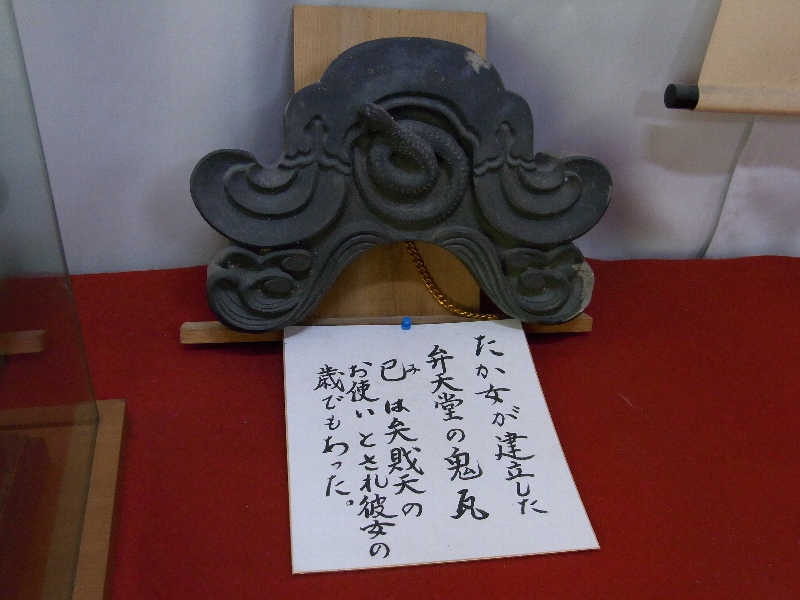 たか女が建立した
弁天堂の鬼瓦
巳み は弁財天の
お使いとされ彼女の
歳でもあった。